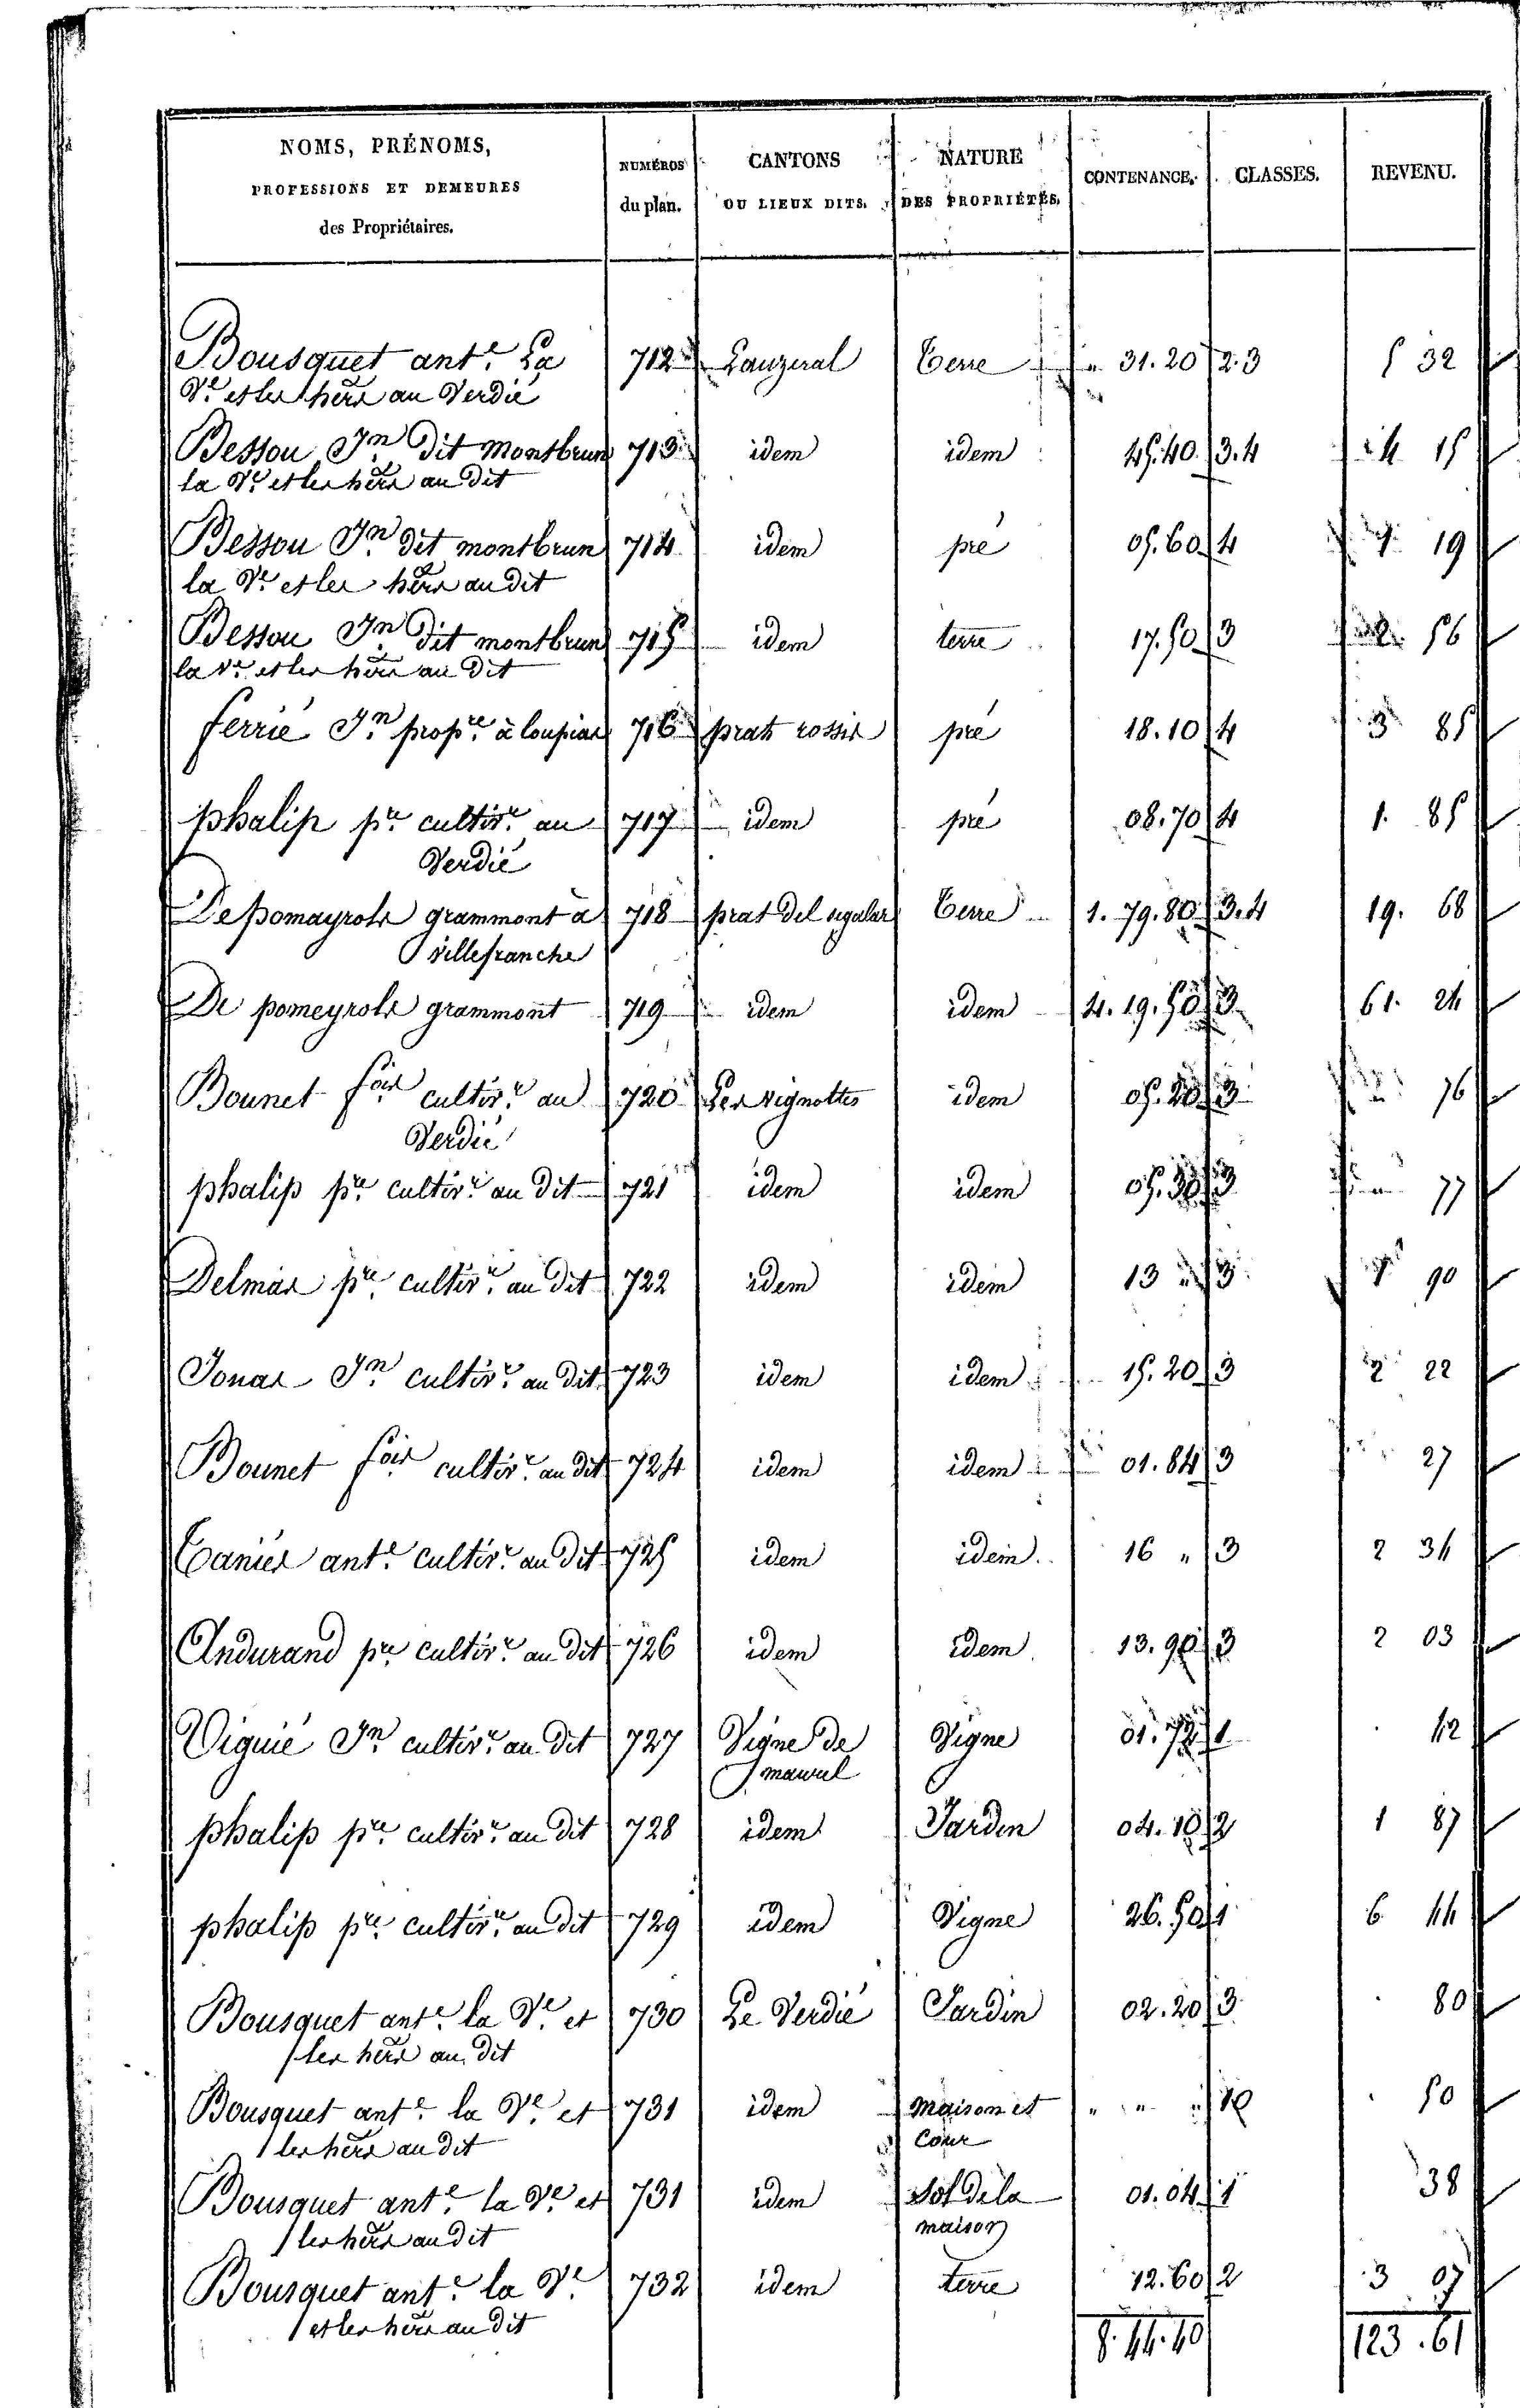 NOMS, PRÉNOMS, PROFESSIONS ET DEMEURES des Propriétaires. NUMÉROS du plan. CANTONS OU LIEUX DITS. NATURE DES PROPRIÉTÉS. CONTENANCE. CLASSES. REVENU.
Bousquet ant.e La 712 Lauzeral Terre " 31. 20 2. 3 5 32
V.e et les hers au Verdié
Bessou Jn dit montbrun 713 idem idem 45. 40. 3. 4 4 15
la V.e et les hers au dit
Bessou Jn dit montbrun 714 idem pré 05. 60 4 1. 19
la V.e et les hers au dit
Bessou Jn dit montbrun 715 idem terre 17. 50 3 2. 56
la V.e et les hers au dit
ferrié Jn prop.re à loupiac 716 prat rossis pré 18. 10 4 3 85
phalip p.re cultiv.r au 717 idem pré 08. 70 4 1. 85
Verdié
De pomayrols grammont à 718 prat del segalar Terre 1. 79. 80 3. 4 19. 68
villefranche
De pomeyrols grammont 719 idem idem 4. 19. 50 3 61. 24
Bounet fois cultiv.r au 720 Les vignottes idem 05. 20 3 " 76
Verdié
phalip p.re cultiv.r au dit 721 idem idem 05. 30 3 " 77
Delmas p.re cultiv.r au dit 722 idem idem 13 " 3 1 90
Jonas Jn cultiv.r au dit 723 idem idem 15. 20 3 2 22
Bounet fois cultiv.r au dit 724 idem idem 01. 84 3 27
Taniés ant.e cultiv.r au dit 725 idem idem. 16 " 3 2 34
Andurand p.re cultiv.r au dit 726 idem idem 13. 90 3 2 03
Viguié Jn cultiv.r au dit 727 Vigne de Vigne 01. 72 1 42
phalip p.re cultiv.r au dit 728 idem Jardin 04. 10 2 1 87
phalip p.re cultiv.r au dit 729 idem Vigne 26. 50 1 6 44
Bousquet ant.e la V.e et 730 Le Verdié Jardin 02. 20 3 80
les hers au dit
Bousquet ant.e la V.e et 731 idem Maison et " " " 10 50
les hers au dit Cour
Bousquet ant.e la V.e et 731 idem Sol de la 01. 04 1 38
les hers au dit maison
Bousquet ant.e la V.e 732 idem terre 12. 60 2 3 07
et les hers au dit
8. 44. 40 123. 61